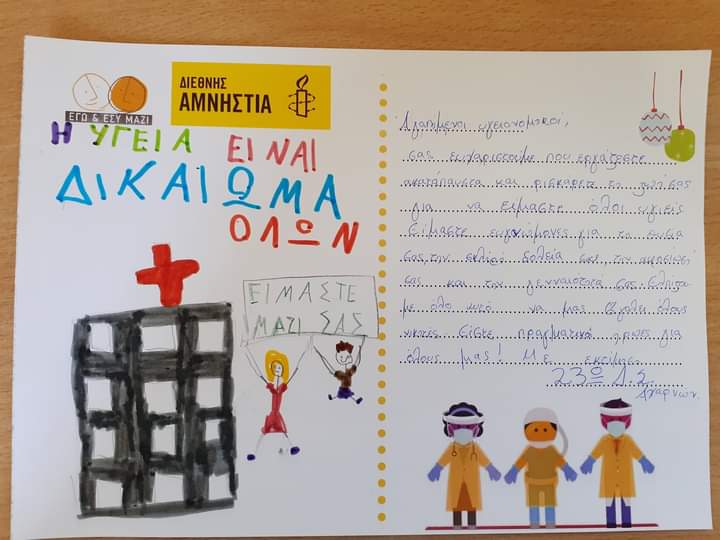 ΕΓΩ & ΕΣΥ ΜΑΖΙ
ΔΙΕΘΝΗΣ
ΑΜΝΗΣΤΙΑ
Η ΥΓΕΙΑ ΕΙΝΑΙ
ΔΙΚΑΙΩΜΑ
ΟΛΩΝ
ΕΙΜΑΣΤΕ
ΜΑΖΙ ΣΑΣ
Αγαπημένοι υγειονομικοί,
σας ευχαριστούμε που εργάζεστε
ακατάπαυστα και ρισκάρετε τη ζωή σας
για να είμαστε όλοι υγιείς
Είμαστε ευγνώμονες για τη θυσία
σας την σκληρή δουλειά σας, τον
σας και την γενναιότητα σας. Ελπίζω
με όλο αυτό να μας βγάλει όλους
νικητές. Είστε πραγματικοί ήρωες για
όλους μας! Με εκτίμηση
23ο Δ.Σ.
Αχαρνών